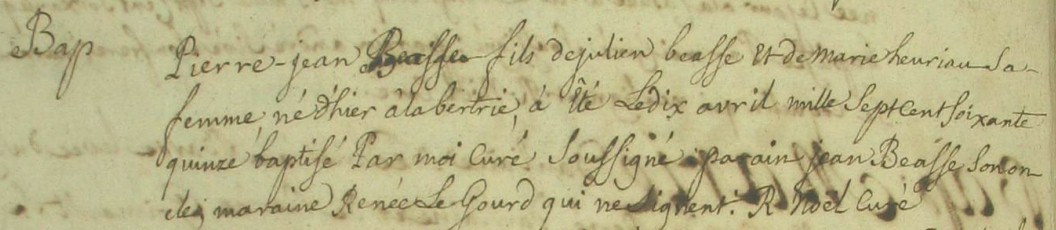 Bap Pierre-jean Beasse fils de julien beasse et de Marie heuriau sa-
femme, né d'hier à la bertrie, à été Le dix avril mille Sept cent soixante
quinze baptisé Par moi Curé Soussigné parain jean Beasse Son on-
cle, maraine Renée Le Gourd qui ne signent. R Noël Curé